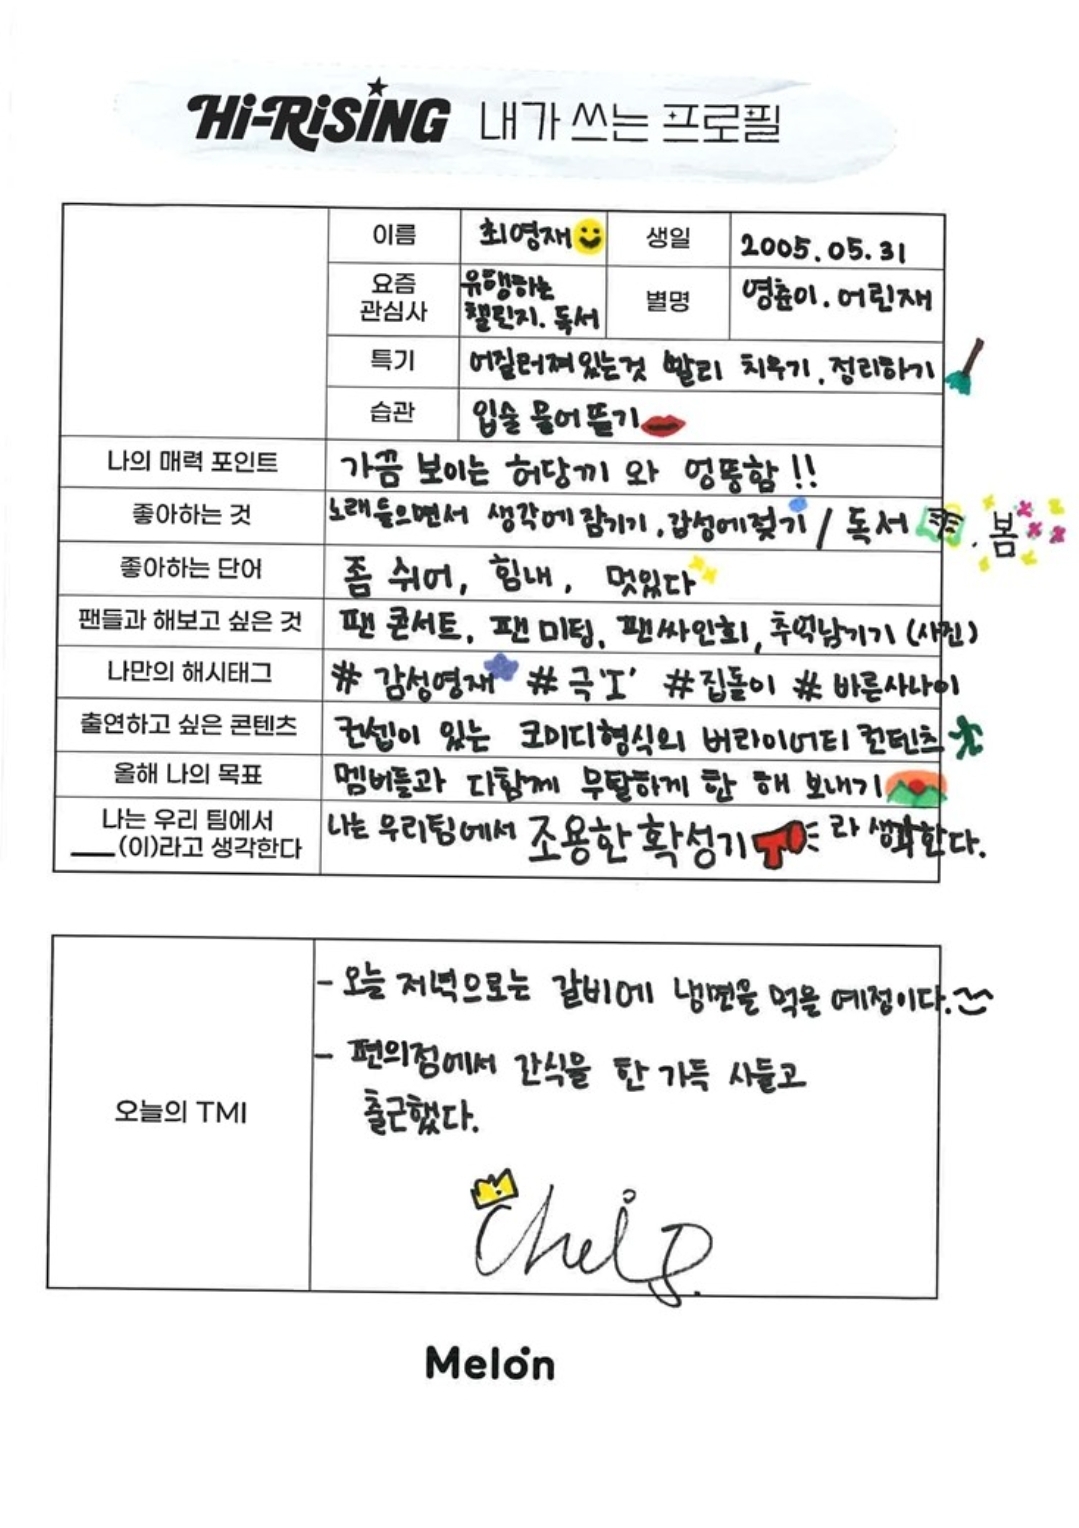 Hi-RiSiNG 내가 쓰는 프로필
이름 최영재 생일 2005.05.31
요즘 관심사 유행하는 챌린지. 독서 별명 영츈이. 어린재
특기 어질러져있는것 빨리 치우기, 정리하기
습관 입술 물어뜯기
나의 매력 포인트 가끔 보이는 허당끼 와 엉뚱함 !!
좋아하는 것 노래들으면서 생각에 잠기기, 감성에젖기 / 독서 . 봄
좋아하는 단어 좀 쉬어, 힘내, 멋있다
팬들과 해보고 싶은 것 팬 콘서트, 팬 미팅, 팬싸인회, 추억남기기 (사진)
나만의 해시태그 # 감성영재 # 극'I' #집돌이 # 바른사나이
출연하고 싶은 콘텐츠 컨셉이 있는 코미디형식의 버라이어티 컨텐츠
올해 나의 목표 멤버들과 다함께 무탈하게 한 해 보내기
나는 우리 팀에서
___(이)라고 생각한다 나는 우리팀에서 조용한 확성기 라 생각한다.
오늘의 TMI
- 오늘 저녁으로는 갈비에 냉면을 먹을 예정이다.
- 편의점에서 간식을 한 가득 사들고
출근했다.
Melon